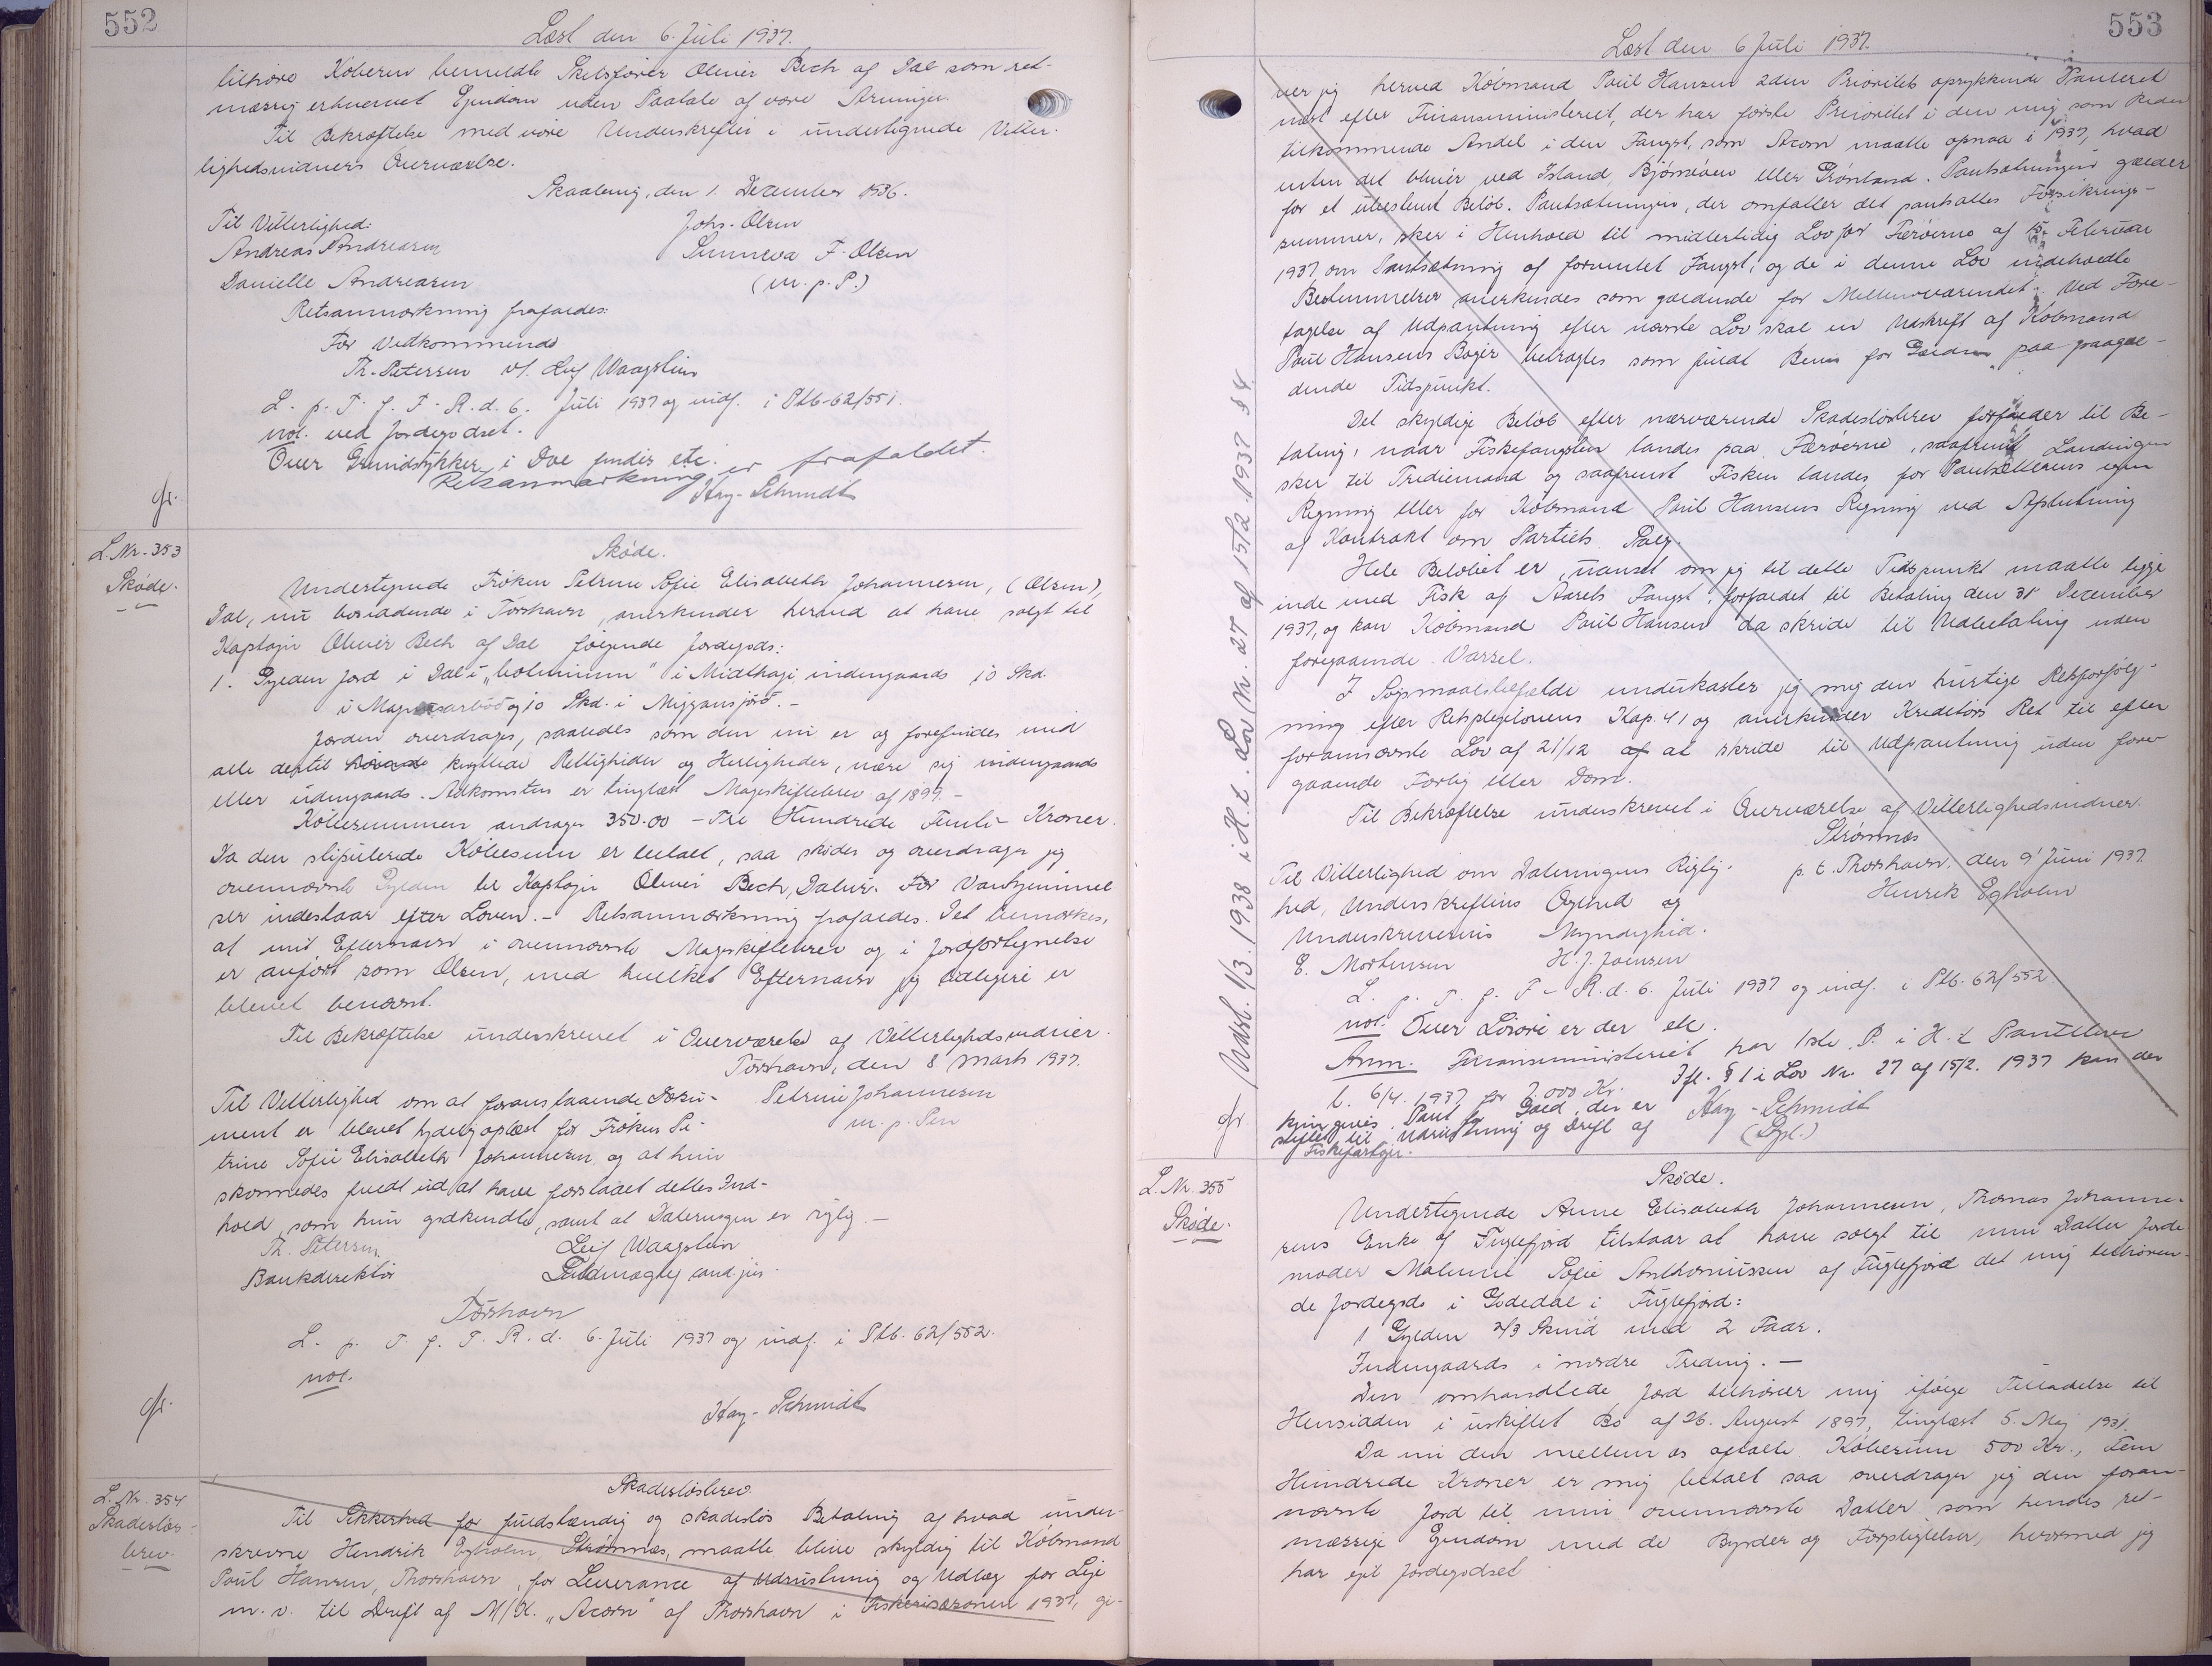 552
Læst den 6. Juli 1937.
tilhøre Køberen bemeldte Skibsfører Oliver Bech af Dal som ret-
mæssig erhvervet Ejendom uden Paatale af vore Arvinger.
Til Bekræftelse med vore Underskrifter i undertegnede Vitter-
lighedsvidners Overværelse.
Skaalevig, den 1. December 1936.
Til Vitterlighed:
Johs. Olsen
Andreas Andreasen
Sunneva F. Olsen
Danielle Andreasen
(m. p. P.)
Retsanmærkning frafaldes:
For Vedkommende
Th. Petersen v/ Leif Waagstein
L. p. T. f. F. R. d. 6. Juli 1937 og indf. i Ptb. 62/551.
not. ved Jordegodset.
Over Grundstykker i Dal findes etc.
Retsanmærkning er frafaldet.
Hay-Schmidt
Gr.
L. Nr. 353
Skøde.
Skøde.
Undertegnede Frøken Petrine Sofie Elisabeth Johannesen, (Olsen),
Dal, nu bosiddende i Tórshavn, anerkender herved at have solgt til
Kaptajn Oliver Bech af Dal følgende Jordegods:
1. Gylden Jord i Dal i "bølinum" i Midthaji indengaards 10 Skd.
og 10 Skd. i Miggansjørð. -
Jorden overdrages, saaledes som den nu er og forefindes med
alle dertil knyttede Rettigheder og Herligheder, være sig indengaards
eller udengaards. Adkomsten er tinglæst Mageskiftebrev af 1897. -
Købesummen andrager 350.00 - Tre Hundrede Femti - Kroner.
Da den stipulerede Købesum er betalt, saa skøder og overdrager jeg
ovennævnte Gylden til Kaptajn Oliver Bech, Dalur. For Vanhjemmel
ser indestaar efter Loven. - Retsanmærkning frafaldes. Det bemærkes,
at mit Efternavn i ovennævnte Mageskiftebrev og i Jordfortegnelse
er anført som Olsen, med hvilket Efternavn jeg tidligere er
blevet benævnt.
Til Bekræftelse underskrevet i Overværelse af Vitterlighedsvidner.
Tórshavn, den 8 Marts 1937.
Til Vitterlighed om at foranstaaende Doku-
Petrine Johannesen
ment er blevet tydelig oplæst for Frøken Pe-
m. p. Pen
trine Sofie Elisabeth Johannesen og at hun
skønnedes fuldt ud at have forstaaet dettes Ind-
hold, som hun godkendte, samt at Dateringen er rigtig. -
Th. Petersen
Leif Waagstein
Bankdirektør
Fuldmægtig cand. jur.
Tórshavn
L. p. T. f. F. R. d. 6. Juli 1937 og indf. i Ptb. 62/552.
not.
Hay-Schmidt
Gr.
L. Nr. 354
Skadesløs-
brev.
Skadesløsbrev
Til Sikkerhed for fuldstændig og skadesløs Betaling af hvad under-
skrevne Hendrik Egholm Strømnæs, maatte blive skyldig til Købmand
Poul Hansen, Thorshavn, for Leverance af Udrustning og Udlæg for Leje
m. v. til Drift af M/K. "Acorn" af Thorshavn i Fiskerisæsonen 1937, gi-
553
Læst den 6 Juli 1937.
ver jeg herved Købmand Poul Hansen 2den Prioritets oprykkende Panteret
næst efter Finansministeriet, der har første Prioritet i den mig som Reder
tilkommende Andel i den Fangst, som Acorn maatte opnaa i 1937, hvad
enten det bliver ved Island, Bjørnøen eller Grønland. Pantsætningen gælder
for et ubestemt Beløb. Pantsætningen, der omfatter det pantsattes Forsikrings-
summer, sker i Henhold til midlertidig Lov for Færøerne af 15. Februar
1937 om Pantsætning af forventet Fangst, og de i denne Lov indeholdte
Bestemmelser anerkendes som gældende for Mellemværendet. Ved Fore-
tagelse af Udpantning efter nævnte Lov skal en Udskrift af Købmand
Poul Hansens Bøger betragtes som fuldt Bevis for Gælden paa paagæl-
dende Tidspunkt.
Det skyldige Beløb efter nærværende Skadesløsbrev forfalder til Be-
taling, naar Fiskefangsten landes paa Færøerne, saafremt Landingen
sker til Trediemand og saafremt Fisken landes for Pantsætterens egen
Regning eller for Købmand Poul Hansens Regning ved Afslutning
af Kontrakt om Partiets Salg.
Hele Beløbet er, uanset om jeg til dette Tidspunkt maatte ligge
inde med Fisk af Aarets Fangst, forfaldet til Betaling den 31 December
1937, og kan Købmand Poul Hansen da skride til Udbetaling uden
foregaaende Varsel.
I Søgsmaalstilfælde underkaster jeg mig den hurtige Retsforfølg-
ning efter Retsplejelovens Kap. 41 og anerkender Kreditors Ret til efter
forannævnte Lov af 21/12 af at skride til Udpantning uden fore-
gaaende Forlig eller Dom.
Til Bekræftelse underskrevet i Overværelse af Vitterlighedsvidner.
Strømnæs
Til Vitterlighed om Dateringens Rigtig-
p. t. Thorshavn, den 9' Juni 1937.
hed, Underskriftens Ægthed og
Henrik Egholm
Underskriverens Myndighed.
E. Mortensen
H. J. Joensen
L. p. T. f. F. R. d. 6. Juli 1937 og indf. i Ptb. 62/552
not. Over Løsøre er der etc.
Anm. Finansministeriet har 1ste P. i H. t. Pantebrev
l. 6/4. 1937 for 7.000 Kr. Ifl. § 1 i Lov Nr. 27 af 15/2. 1937 kan der
kun gives Pant for Gæld, der er
Hay-Schmidt
stiftet til Udrustning og Drift af
(Gpl.)
Fiskefartøjer.
Gr
Udsl. 1/3. 1938 i H. t. Lov Nr. 27 af 15/2 1937 § 4.
L. Nr. 355
Skøde.
Skøde.
Undertegnede Anne Elisabeth Johannesen, Thomas Johanne-
sens Enke af Fuglefjord tilstaar at have solgt til min Datter Jorde-
moder Malene Sofie Anthoniussen af Fuglefjord det mig tilhøren-
de Jordegods i Godedal i Fuglefjord:
1 Gylden 2/3 Skind med 2 Faar.
Indengaards i nordre Treding. -
Den omhandlede Jord tilhører mig ifølge Tilladelse til
Hensidden i uskiftet Bo af 26. August 1897, tinglæst 5. Maj 1931.
Da nu den mellem os aftalte Købesum 500 Kr., Fem
Hundrede Kroner er mig betalt saa overdrager jeg den foran-
nævnte Jord til min ovennævnte Datter som hendes ret-
mæssige Ejendom med de Byrder og Forpligtelser, hvormed jeg
har ejet Jordegodset